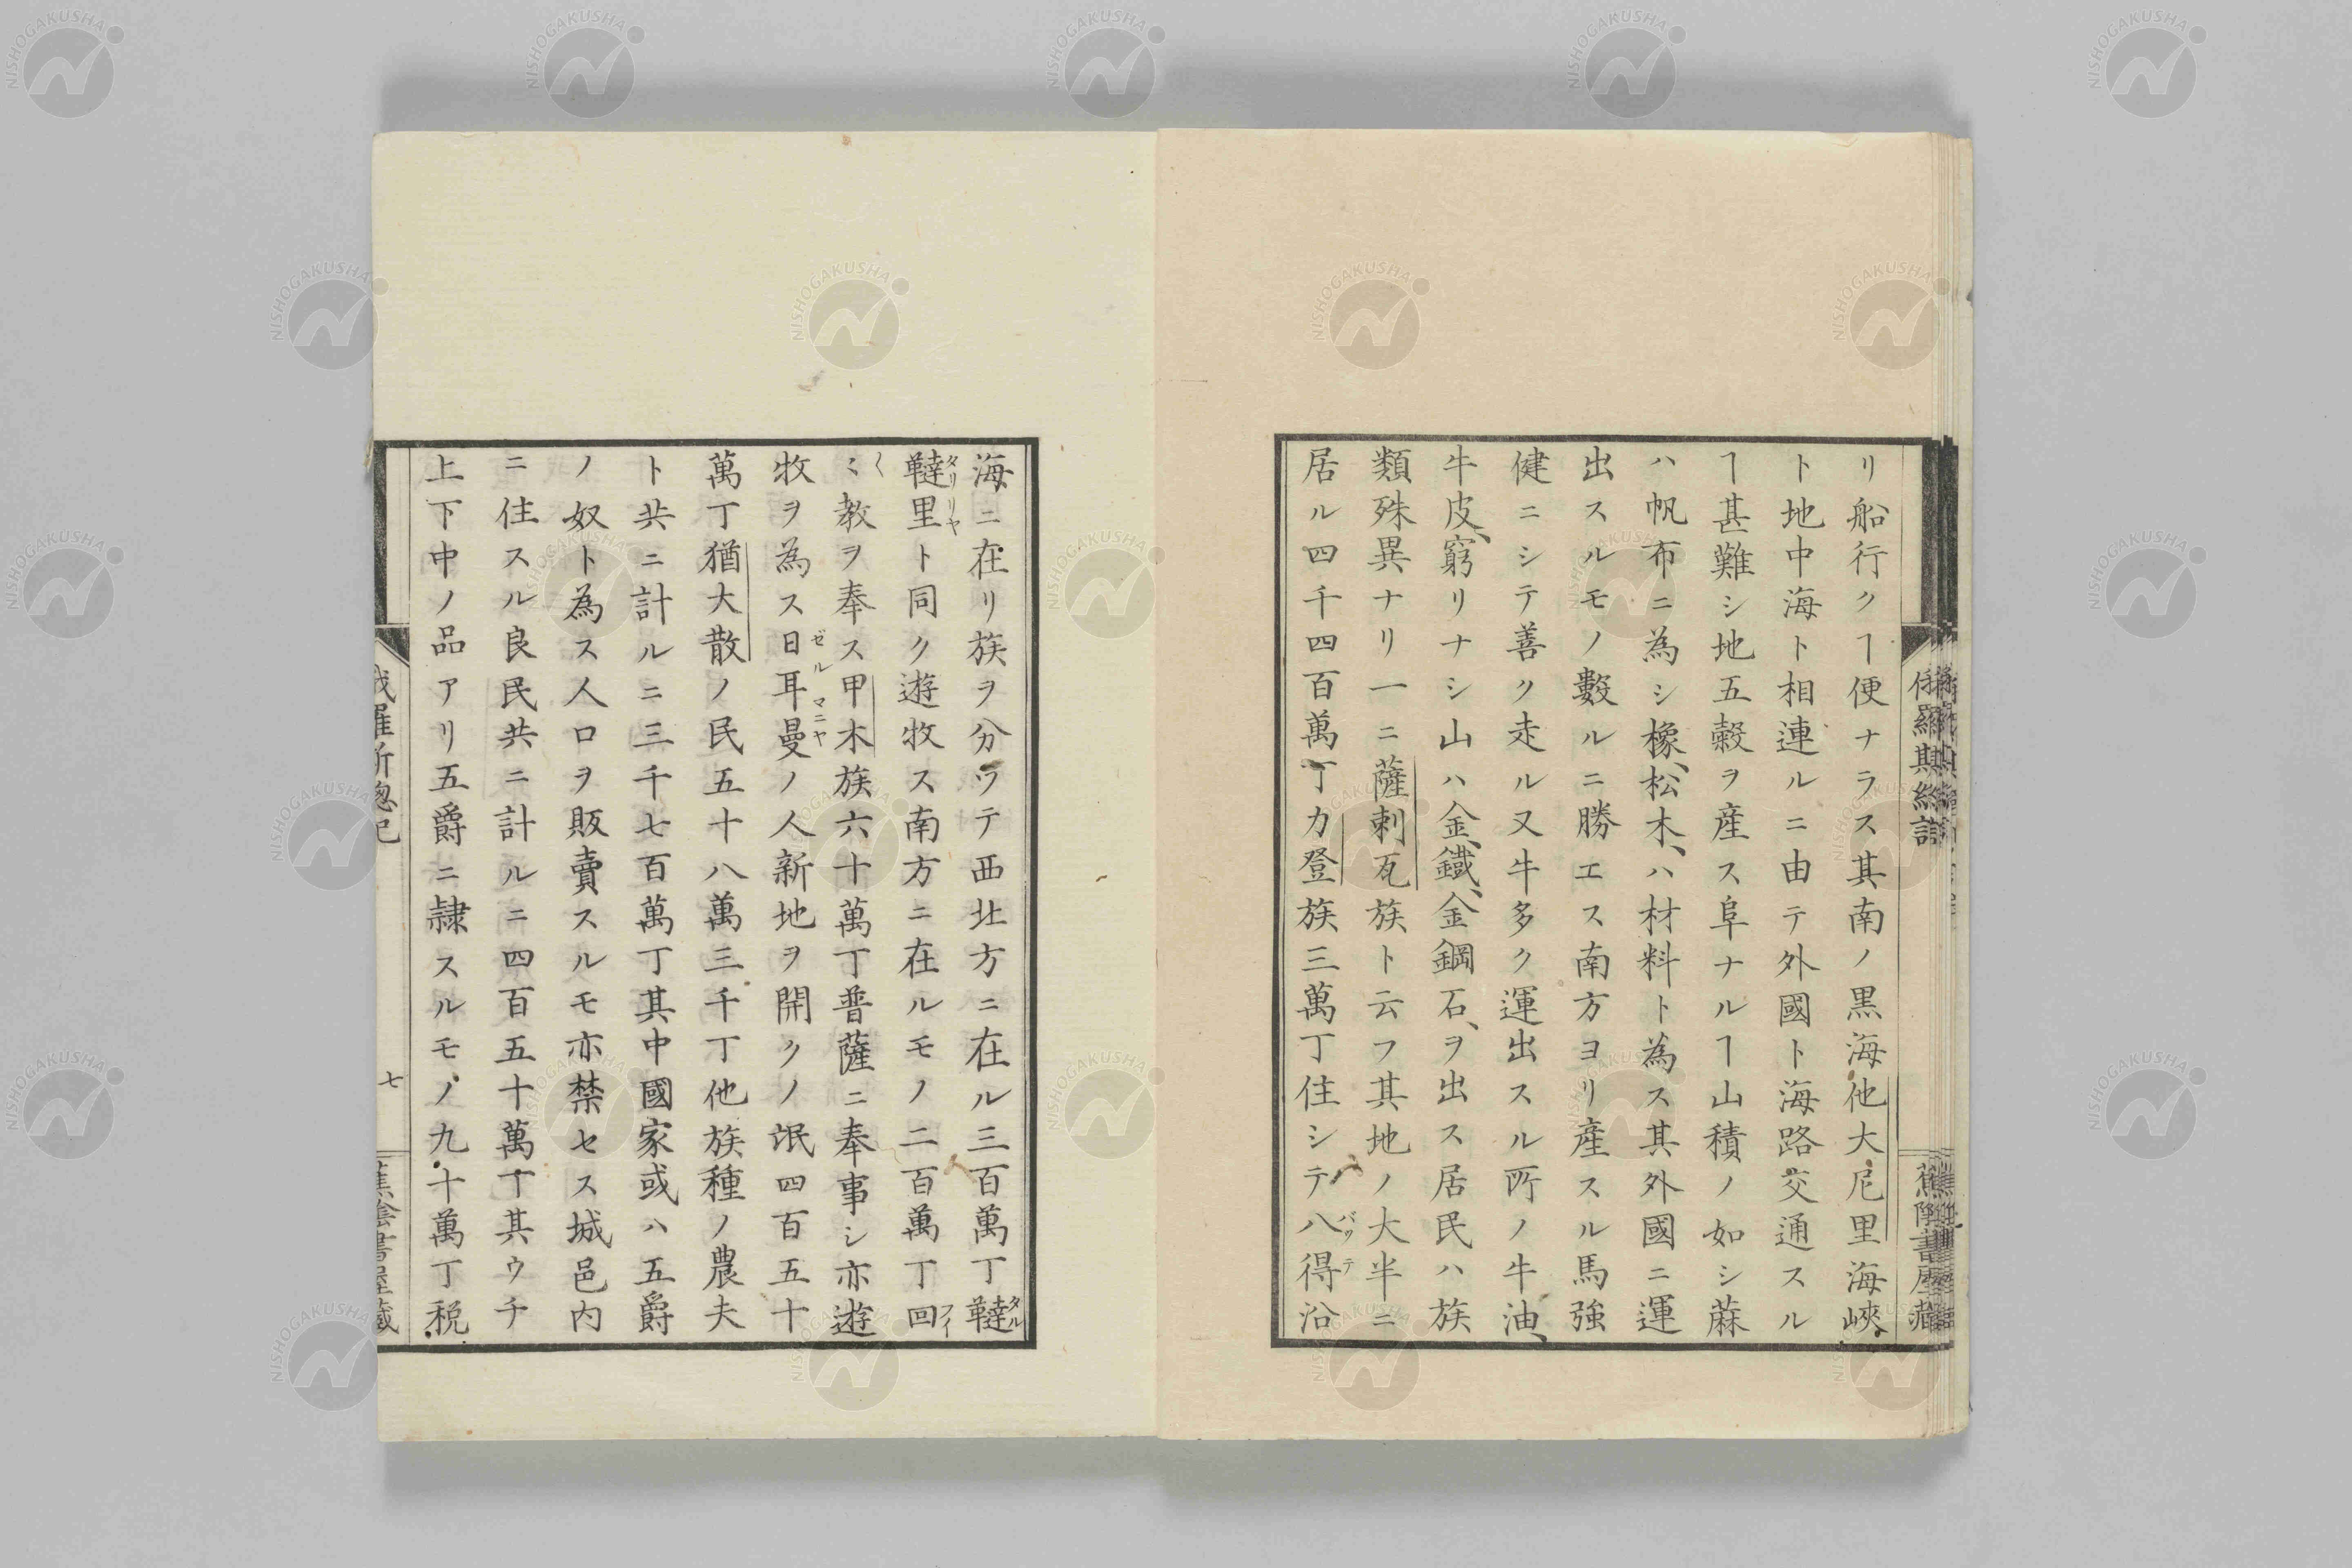 リ船行クヿ便ナラス其南ノ黒海他大尼里海峽
ト地中海ト相連ルニ由テ外國ト海路交通スル
ヿ甚難シ地五穀ヲ産ス阜ナルヿ山積ノ如シ蔴
ハ帆布ニ為シ橡、松木、ハ材料ト為ス其外國ニ運
出スルモノ數ルニ勝エス南方ヨリ産スル馬強
健ニシテ善ク走ル又牛多ク運出スル所ノ牛油、
牛皮、窮リナシ山ハ金、鐵、金鋼石、ヲ出ス居民ハ族
類殊異ナリ一ニ薩剌瓦族ト云フ其地ノ大半ニ
居ル四千四百萬丁カ登族三萬丁住シテ八得沿
バッテ
海ニ在リ族ヲ分ツテ西北方ニ在ル三百萬丁韃
タル
韃里ト同ク遊牧ス南方ニ在ルモノ二百萬丁回
タリリヤ
フイ
ミ教ヲ奉ス甲木族六十萬丁普薩ニ奉事シ亦遊
牧ヲ為ス日耳曼ノ人新地ヲ開クノ氓四百五十
ゼルマニヤ
萬丁猶大散ノ民五十八萬三千丁他族種ノ農夫
ト共ニ計ルニ三千七百萬丁其中國家或ハ五爵
ノ奴ト為ス人口ヲ販賣スルモ亦禁セス城邑内
ニ住スル良民共ニ計ルニ四百五十萬丁其ウチ
上下中ノ品アリ五爵ニ隷スルモノ九十萬丁税
七
NISHOGAKUSHA